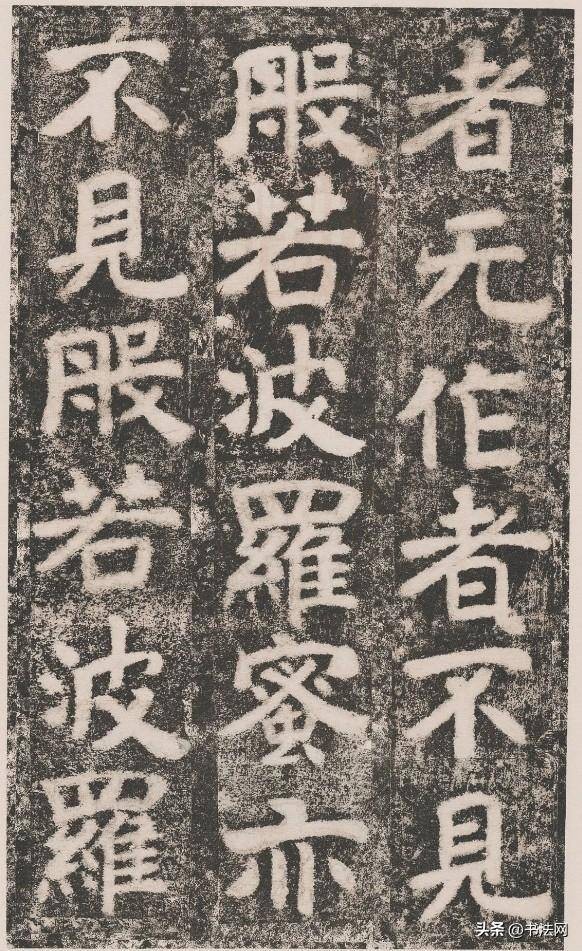 者无作者不见
般若波羅蜜亦
不見般若波羅
头条@书法网